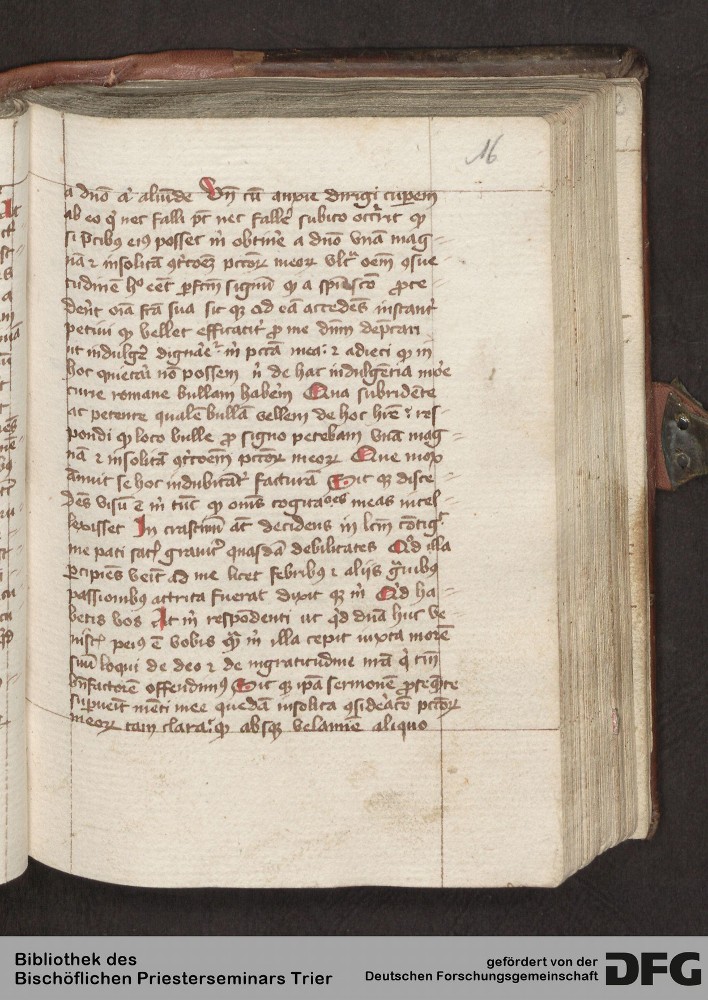 16
a dno a' aliude Vn cu anxie dirigi cuperem
ab eo q nec falli pt nec falle subito occrrit q
si pcibus eius posset m obtine a dno vna mag-
na et insolita otcoem pctor meor vlt oem osue
tudine hoc eet pfcm signu q a spu sco proce
deret oia fca sua sic que ad ea accedes instant
petiui q vellet efficacit pro me dnm depcari
ut indulge dignare m pcca mea et adieci q in
hoc quietari no possem n de hac indulgecia more
curie romane bullam haberem Qua subridete
ac petente quale bulla vellem de hoc hre res-
pondi q loco bulle pro signo peteba vna mag-
na et insolita otcoem pctor meor Que mox
annuit se hoc indubitat factura Sic que disce
des visu e m tuc q omis cogitacoes meas intel-
lexisset In crastinu at decidens in lcm cotig
me pati sat grauit quasda debilitates Qd illa
pcipies veit ad me licet febribus et aliis guibus
passionibus attrita fuerat dixit que m Qd ha-
betis vos At m respodenti ut qd dna huc ve-
nist peius e vobis qua m illa cepit iuxta more
suu loqui de deo et de ingratitudine nra q tm
bnfactore offendimus Sic que ipa sermone proseqte
supueit meti mee queda insolita osideraco pctor
meor tam clara q absque velamie aliquo
Bibliothek des
Bischöflichen Priesterseminars Trier
gefördert von der
Deutschen Forschungsgemeinschaft
DFG